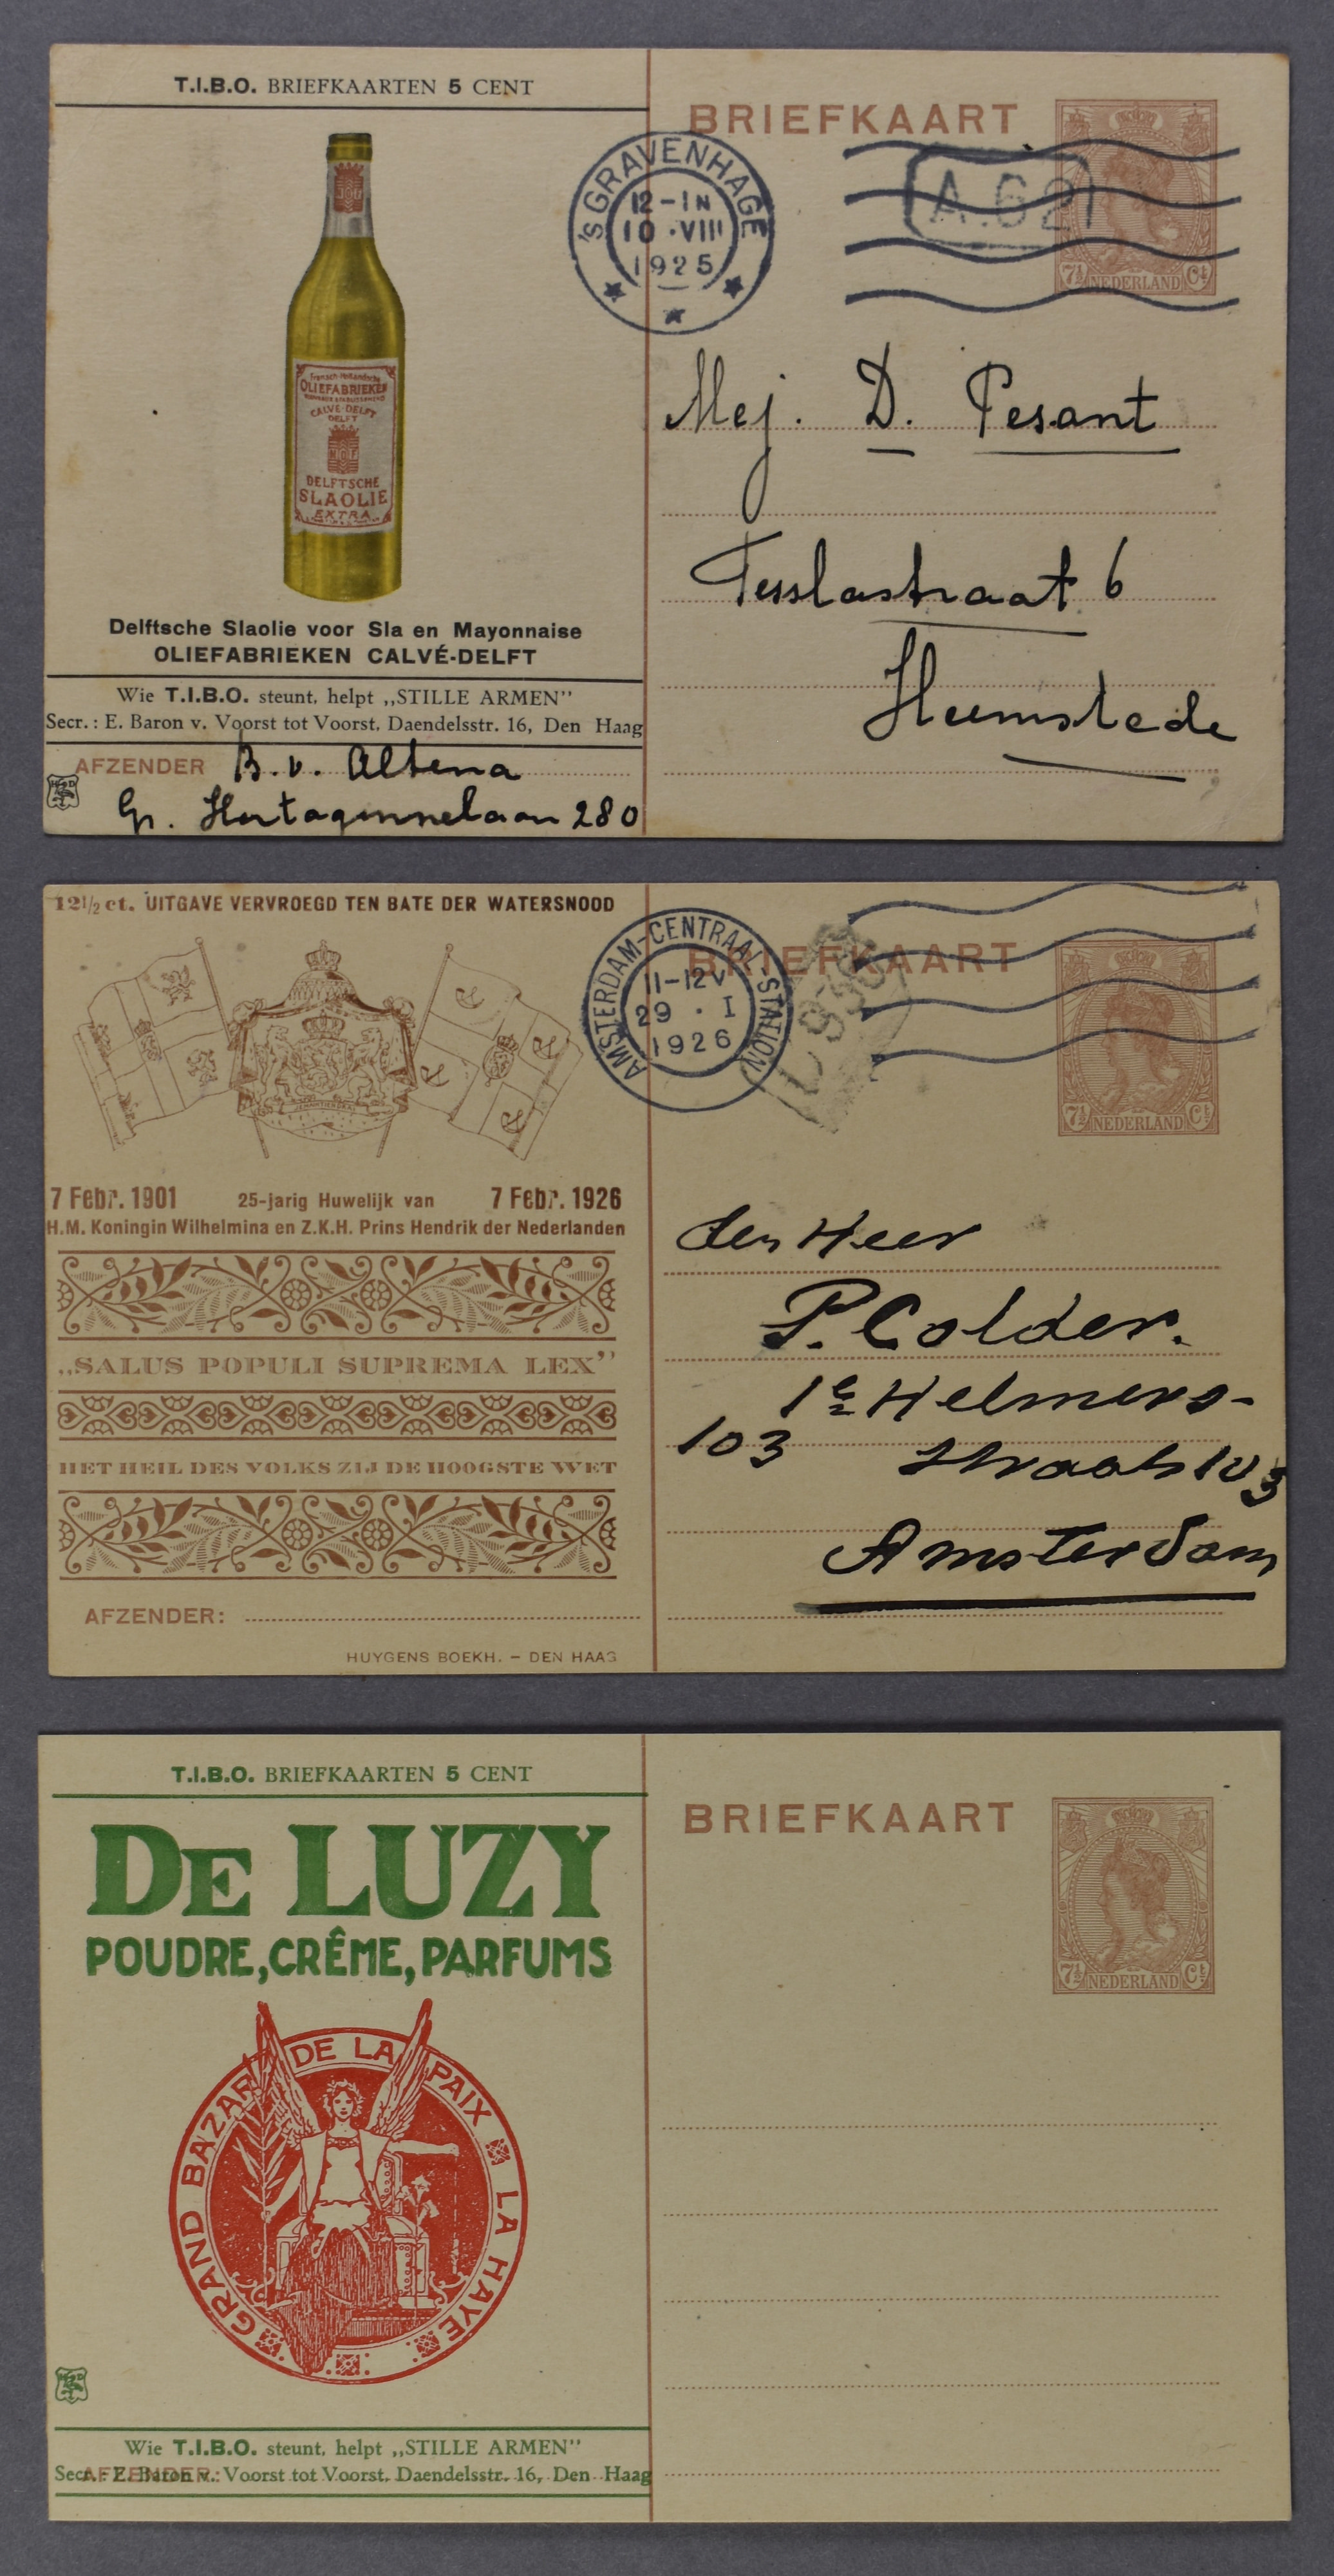 T.I.B.O. BRIEFKAARTEN 5 CENT
Fransch-Hollandsche
OLIEFABRIEKEN
CALVÉ-DELFT
DELFT
NOF
DELFTSCHE
SLAOLIE
EXTRA
Delftsche Slaolie voor Sla en Mayonnaise
OLIEFABRIEKEN CALVÉ-DELFT
Wie T.I.B.O. steunt, helpt „STILLE ARMEN”
Secr.: E. Baron v. Voorst tot Voorst, Daendelsstr. 16, Den Haag
AFZENDER B. v. Altena
Gr. Hertoginnelaan 280
BRIEFKAART
's GRAVENHAGE
12-1N
10.VIII
1925
A.62
7½ NEDERLAND Ct
Mej. D. Pesant
Tesslastraat 6
Heemstede
12½ ct. UITGAVE VERVROEGD TEN BATE DER WATERSNOOD
7 Febr. 1901 25-jarig Huwelijk van 7 Febr. 1926
H.M. Koningin Wilhelmina en Z.K.H. Prins Hendrik der Nederlanden
„SALUS POPULI SUPREMA LEX”
HET HEIL DES VOLKS ZIJ DE HOOGSTE WET
AFZENDER:
HUYGENS BOEKH. – DEN HAAG
BRIEFKAART
AMSTERDAM-CENTRAAL-STATION
11-12V
29.I
1926
7½ NEDERLAND Ct
den Heer
P. Colder.
1e Helmers-
103 straat 103
Amsterdam
T.I.B.O. BRIEFKAARTEN 5 CENT
DE LUZY
POUDRE, CRÊME, PARFUMS
GRAND BAZAR DE LA PAIX LA HAYE
Wie T.I.B.O. steunt, helpt „STILLE ARMEN”
Secr.: E. Baron v. Voorst tot Voorst, Daendelsstr. 16, Den Haag
AFZENDER:
BRIEFKAART
7½ NEDERLAND Ct